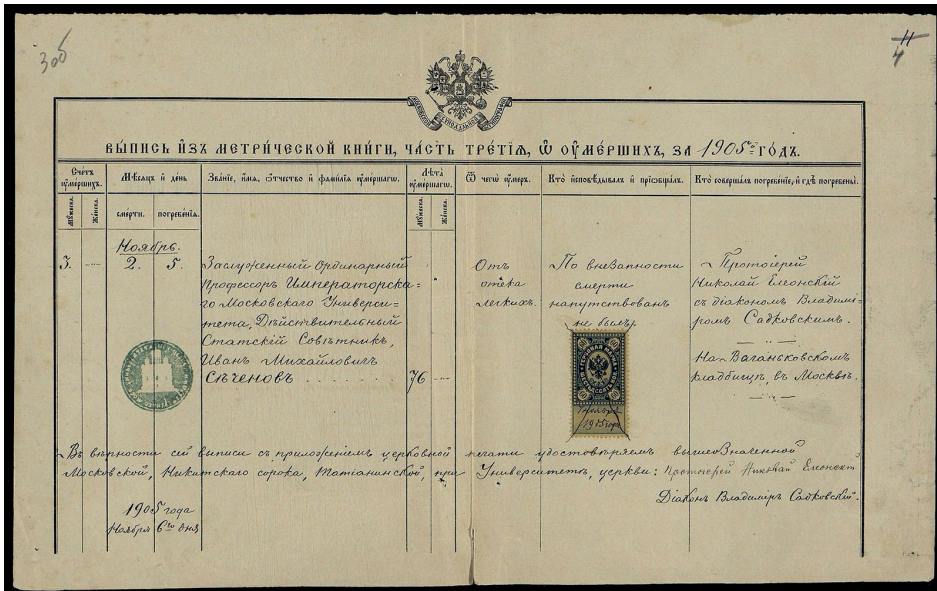 306
11
4
ВЫ́ПИСЬ И҆ЗЪ МЕТРИ́ЧЕСКОЙ КНИ́ГИ, ЧА́СТЬ ТРЕ́ТІѦ, Ѡ҆ ОУ҆МЕ́РШИХЪ, ЗА 1905й ГО́ДЪ.
Сче́тъ оу҆ме́ршихъ.
Мꙋ́жеска.
Же́нска.
Мѣ́сѧцъ и҆ де́нь
сме́рти.
погребе́нїѧ.
Зва́нїе, и҆́мѧ, ѻ҆́тчество и҆ фами́лїѧ оу҆ме́ршагѡ.
Лѣ́та оу҆ме́ршагѡ.
Мꙋ́жеска.
Же́нска.
Ѿ чегѡ̀ оу҆́меръ.
Кто̀ и҆сповѣ́дывалъ и҆ прїѡбща́лъ.
Кто̀ соверша́лъ погребе́нїе, и҆ гдѣ̀ погребены̀.
Ноябрь.
3. — 2. 5.
Заслуженный Ординарный
Профессоръ Императорска-
го Московскаго Универси-
тета, Дѣйствительный
Статскій Совѣтникъ,
Иванъ Михайловичъ
Сѣченовъ
76 —
Отъ
отека
легкихъ.
По внезапности
смерти
напутствованъ
не былъ.
Протоіерей
Николай Елеонскій
съ діакономъ Владимі-
ромъ Садковскимъ.
На Ваганьковскомъ
кладбищѣ, въ Москвѣ.
60
60
60
60
Ноября
1905 года
Въ вѣрности сей выписи съ приложеніемъ церковной печати удостовѣряемъ вышеозначенной
Московской, Никитскаго сорока, Татіанинской, при Университетѣ, церкви: Протоіерей Николай Елеонскій
Діаконъ Владиміръ Садковскій.
1905 года
Ноября 6го дня